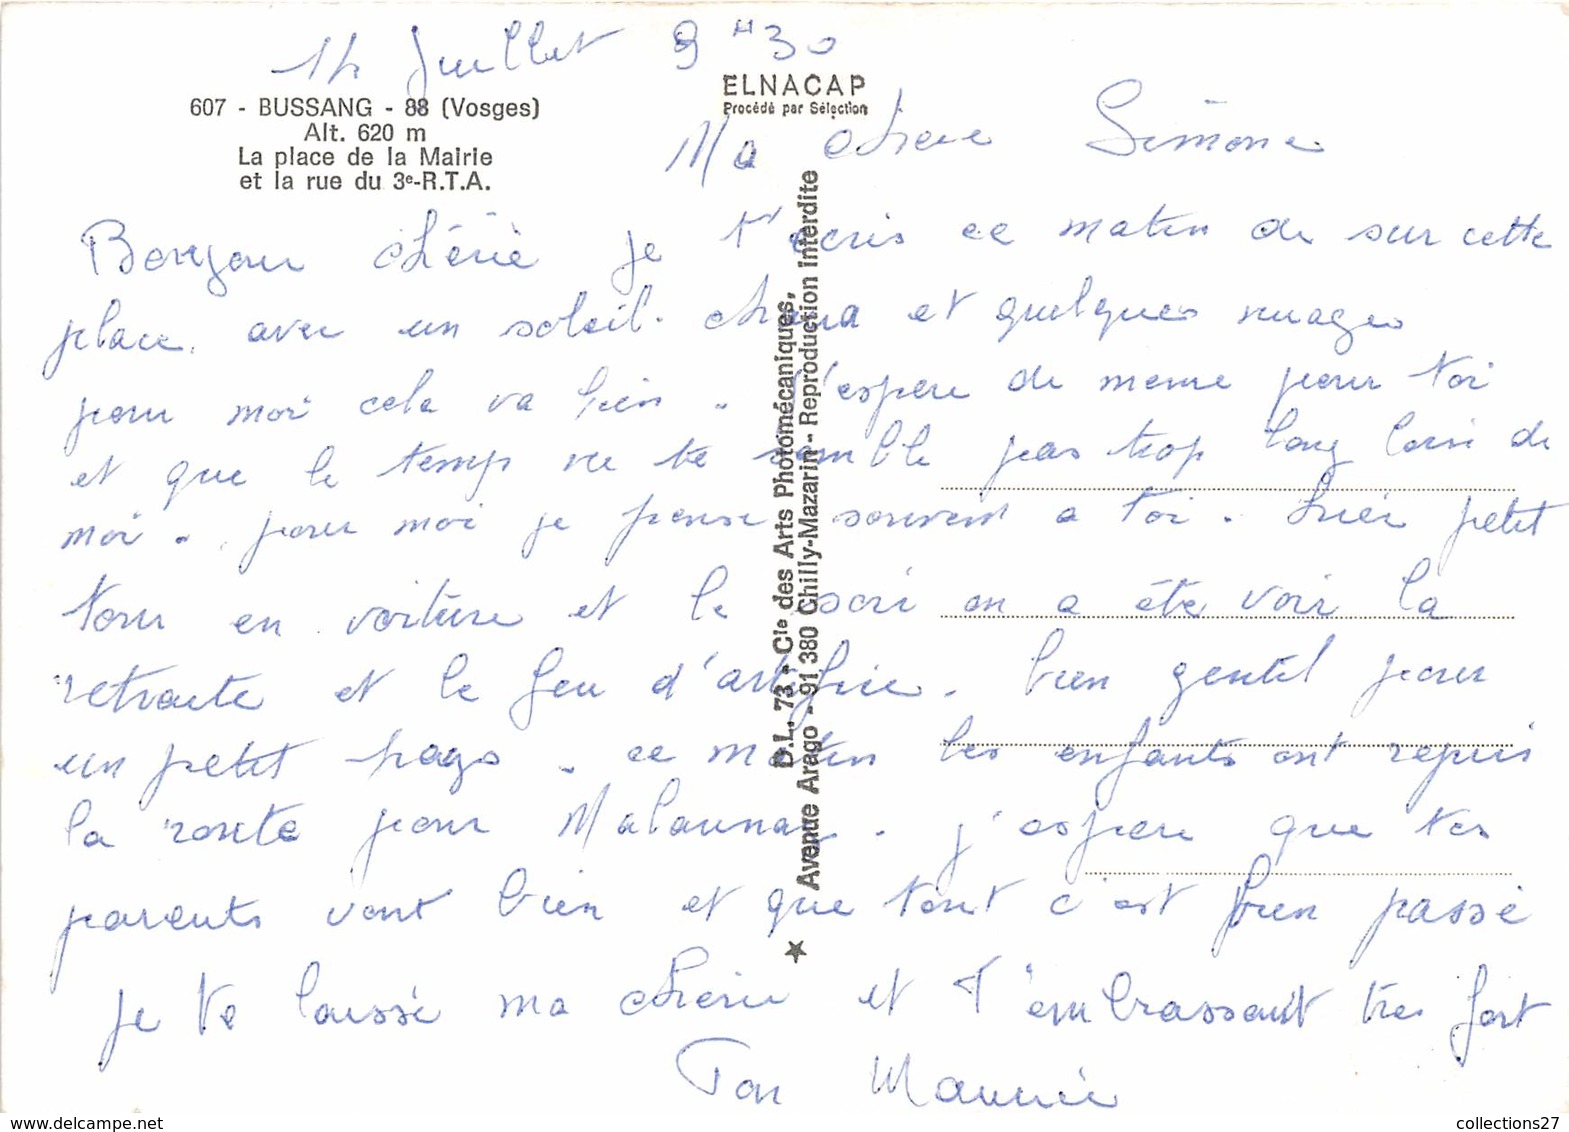 14 Juillet 9H30
607 - BUSSANG - 88 (Vosges)
Alt. 620 m
La place de la Mairie
et la rue du 3e-R.T.A.
ELNACAP
Procédé par Sélection
D.L. 73 - Cie des Arts Photomécaniques,
Avenue Arago - 91 380 Chilly-Mazarin - Reproduction interdite
Ma chere Simone
Bonjour chérie je t'ecris ce matin de sur cette
place, avec un soleil. chaud et quelques nuages
pour moi cela va bien. j'espere de meme pour toi
et que le temp ne te semble pas trop long loin de
moi. pour moi je pense souvent a toi. hier petit
tour en voiture et le soir on a été voir la
retraite et le feu d'artifice. bien gentil pour
un petit pays. ce matin les enfants ont repris
la route pour Malaunay. j'espere que tes
parents vont bien et que tout c'est bien passé
je te laisse ma cherie et t'embrassant tres fort
Ton Maurice
collections27